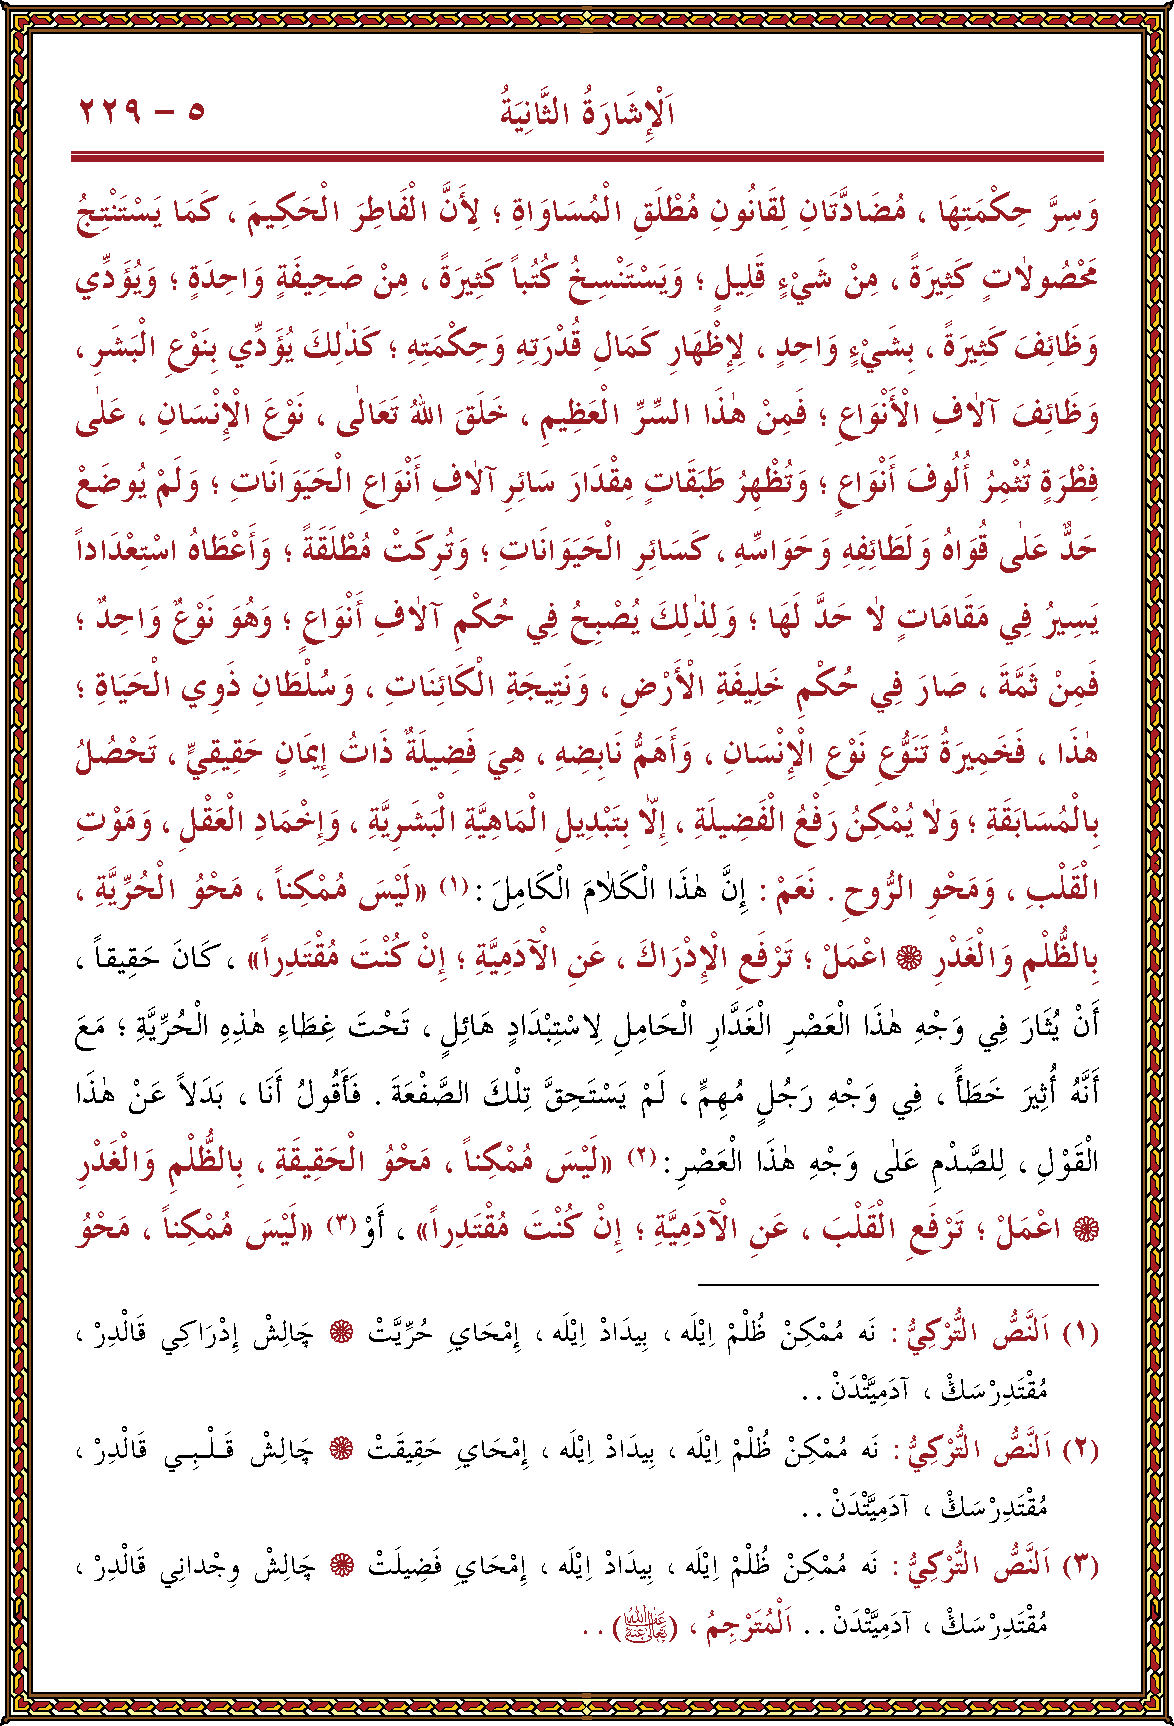 اَلْإِشَارَةُ الثَّانِيَةُ
٥ - ٢٢٩
وَسِرَّ حِكْمَتِهَا ، مُضَادَّتَانِ لِقَانُونِ مُطْلَقِ الْمُسَاوَاةِ ؛ لِأَنَّ الْفَاطِرَ الْحَكِيمَ ، كَمَا يَسْتَنْتِجُ
مَحْصُولَاتٍ كَثِيرَةً ، مِنْ شَيْءٍ قَلِيلٍ ؛ وَيَسْتَنْسِخُ كُتُباً كَثِيرَةً ، مِنْ صَحِيفَةٍ وَاحِدَةٍ ؛ وَيُؤَدِّي
وَظَائِفَ كَثِيرَةً ، بِشَيْءٍ وَاحِدٍ ، لِإِظْهَارِ كَمَالِ قُدْرَتِهِ وَحِكْمَتِهِ ؛ كَذٰلِكَ يُؤَدِّي بِنَوْعِ الْبَشَرِ ،
وَظَائِفَ آلَافِ الْأَنْوَاعِ ؛ فَمِنْ هٰذَا السِّرِّ الْعَظِيمِ ، خَلَقَ اللهُ تَعَالٰى ، نَوْعَ الْإِنْسَانِ ، عَلٰى
فِطْرَةٍ تُثْمِرُ أُلُوفَ أَنْوَاعٍ ؛ وَتُظْهِرُ طَبَقَاتٍ مِقْدَارَ سَائِرِ آلَافِ أَنْوَاعِ الْحَيَوَانَاتِ ؛ وَلَمْ يُوضَعْ
حَدٌّ عَلٰى قُوَاهُ وَلَطَائِفِهِ وَحَوَاسِّهِ ، كَسَائِرِ الْحَيَوَانَاتِ ؛ وَتُرِكَتْ مُطْلَقَةً ؛ وَأَعْطَاهُ اسْتِعْدَاداً
يَسِيرُ فِي مَقَامَاتٍ لَا حَدَّ لَهَا ؛ وَلِذٰلِكَ يُصْبِحُ فِي حُكْمِ آلَافِ أَنْوَاعٍ ؛ وَهُوَ نَوْعٌ وَاحِدٌ ؛
فَمِنْ ثَمَّةَ ، صَارَ فِي حُكْمِ خَلِيفَةِ الْأَرْضِ ، وَنَتِيجَةِ الْكَائِنَاتِ ، وَسُلْطَانِ ذَوِي الْحَيَاةِ ؛
هٰذَا ، فَخَمِيرَةُ تَنَوُّعِ نَوْعِ الْإِنْسَانِ ، وَأَهَمُّ نَابِضِهِ ، هِيَ فَضِيلَةٌ ذَاتُ إِيمَانٍ حَقِيقِيٍّ ، تَحْصُلُ
بِالْمُسَابَقَةِ ؛ وَلَا يُمْكِنُ رَفْعُ الْفَضِيلَةِ ، إِلَّا بِتَبْدِيلِ الْمَاهِيَّةِ الْبَشَرِيَّةِ ، وَإِخْمَادِ الْعَقْلِ ، وَمَوْتِ
الْقَلْبِ ، وَمَحْوِ الرُّوحِ . نَعَمْ : إِنَّ هٰذَا الْكَلَامَ الْكَامِلَ : (١) «لَيْسَ مُمْكِناً ، مَحْوُ الْحُرِّيَّةِ ،
بِالظُّلْمِ وَالْغَدْرِ ❁ اعْمَلْ ؛ تَرْفَعِ الْإِدْرَاكَ ، عَنِ الْآدَمِيَّةِ ؛ إِنْ كُنْتَ مُقْتَدِراً» ، كَانَ حَقِيقاً ،
أَنْ يُثَارَ فِي وَجْهِ هٰذَا الْعَصْرِ الْغَدَّارِ الْحَامِلِ لِاسْتِبْدَادٍ هَائِلٍ ، تَحْتَ غِطَاءِ هٰذِهِ الْحُرِّيَّةِ ؛ مَعَ
أَنَّهُ أُثِيرَ خَطَأً ، فِي وَجْهِ رَجُلٍ مُهِمٍّ ، لَمْ يَسْتَحِقَّ تِلْكَ الصَّفْعَةَ . فَأَقُولُ أَنَا ، بَدَلاً عَنْ هٰذَا
الْقَوْلِ ، لِلصَّدْمِ عَلٰى وَجْهِ هٰذَا الْعَصْرِ : (٢) «لَيْسَ مُمْكِناً ، مَحْوُ الْحَقِيقَةِ ، بِالظُّلْمِ وَالْغَدْرِ
❁ اعْمَلْ ؛ تَرْفَعِ الْقَلْبَ ، عَنِ الْآدَمِيَّةِ ؛ إِنْ كُنْتَ مُقْتَدِراً» ، أَوْ (٣) «لَيْسَ مُمْكِناً ، مَحْوُ
(١) اَلنَّصُّ التُّرْكِيُّ : نَه مُمْكِنْ ظُلْمْ اِيْلَه ، بِيدَادْ اِيْلَه ، إِمْحَايِ حُرِّيَّتْ ❁ چَالِشْ إِدْرَاكِي قَالْدِرْ ،
مُقْتَدِرْسَكْ ، آدَمِيَّتْدَنْ . .
(٢) اَلنَّصُّ التُّرْكِيُّ : نَه مُمْكِنْ ظُلْمْ اِيْلَه ، بِيدَادْ اِيْلَه ، إِمْحَايِ حَقِيقَتْ ❁ چَالِشْ قَلْبِي قَالْدِرْ ،
مُقْتَدِرْسَكْ ، آدَمِيَّتْدَنْ . .
(٣) اَلنَّصُّ التُّرْكِيُّ : نَه مُمْكِنْ ظُلْمْ اِيْلَه ، بِيدَادْ اِيْلَه ، إِمْحَايِ فَضِيلَتْ ❁ چَالِشْ وِجْدانِي قَالْدِرْ ،
مُقْتَدِرْسَكْ ، آدَمِيَّتْدَنْ . . اَلْمُتَرْجِمُ ، ( ) . .